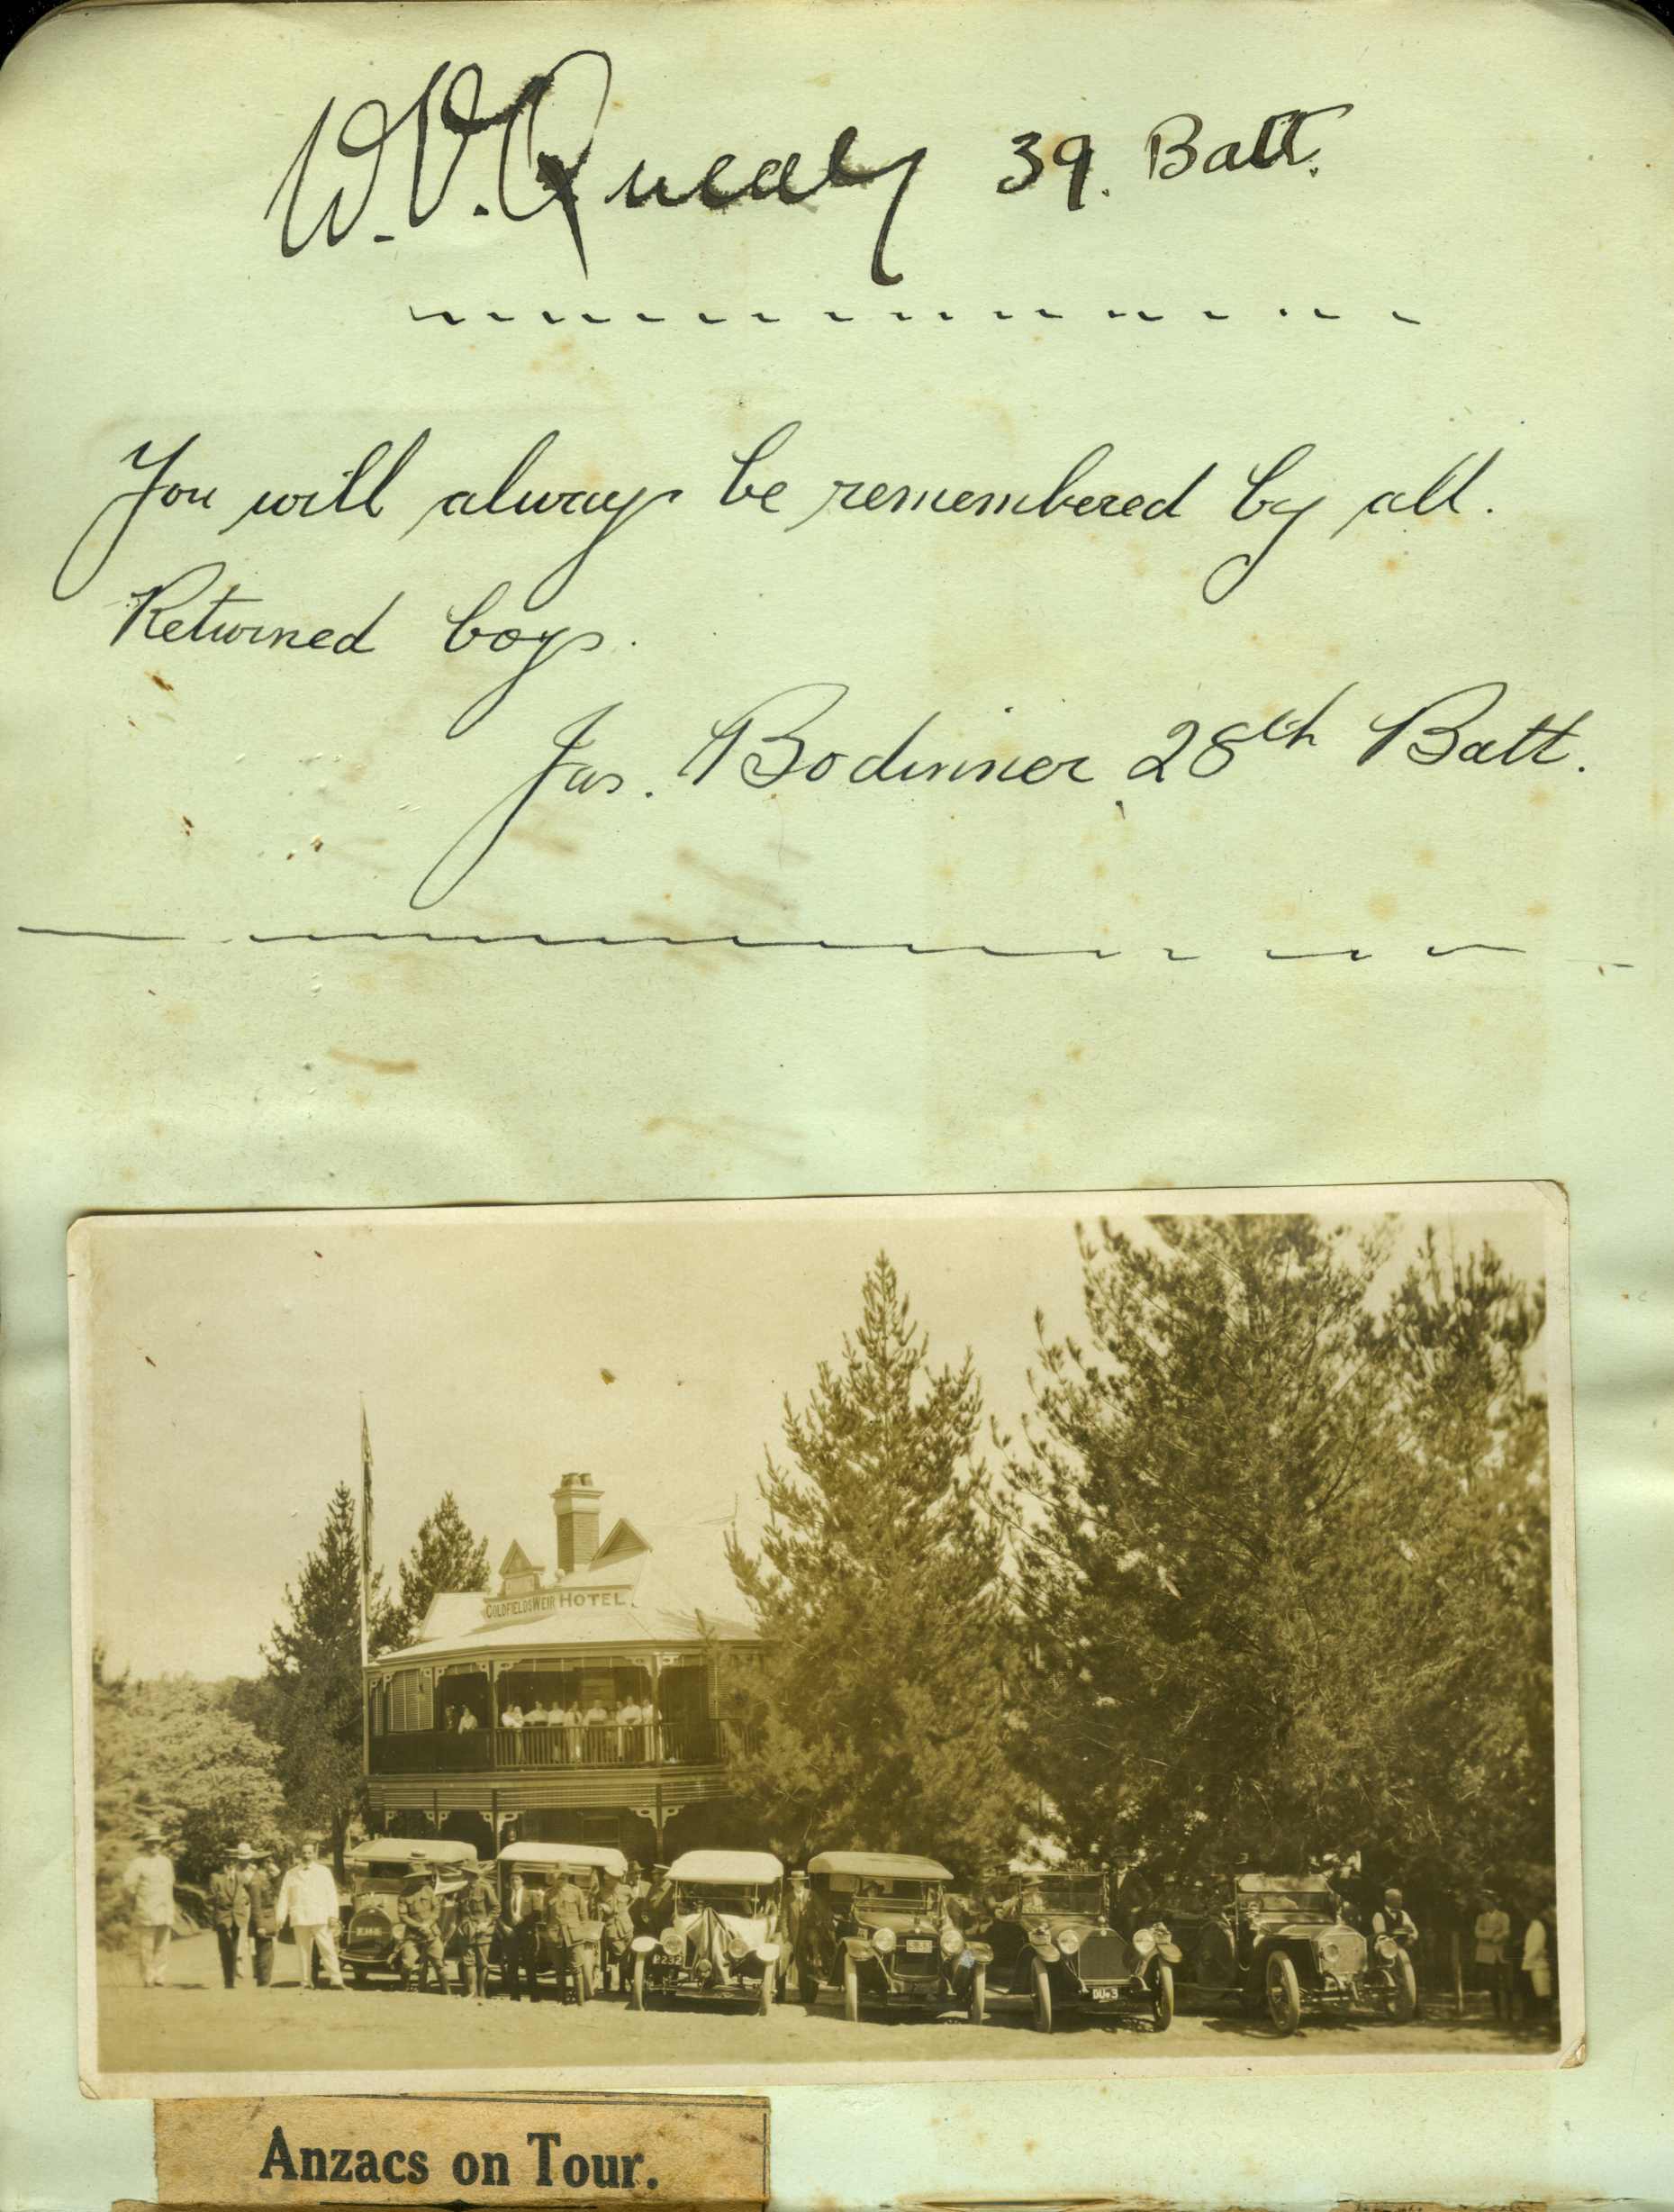 W.V. Quealy 39. Batt.
You will always be remembered by all.
Returned boys.
Jas. Bodinner 28th Batt.
GOLDFIELDS WEIR HOTEL.
DU.3
Anzacs on Tour.